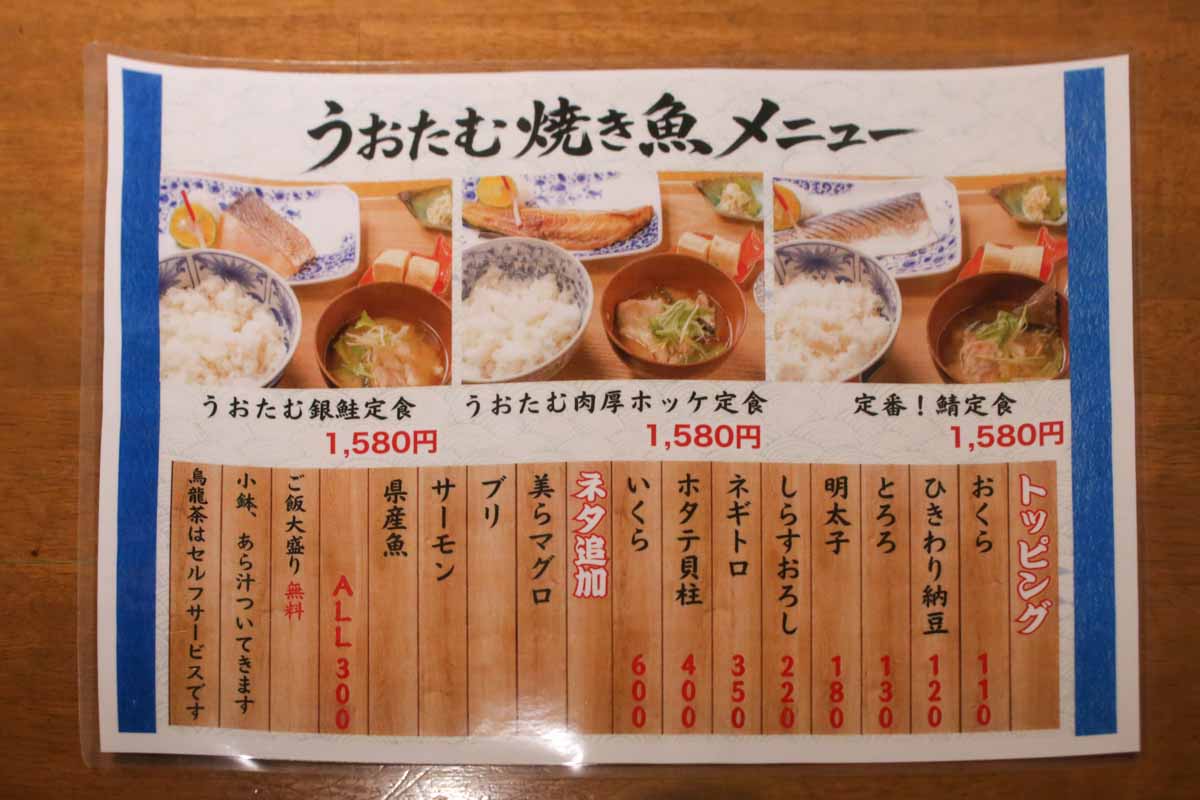 うおたむ焼き魚メニュー
うおたむ銀鮭定食
1,580円
うおたむ肉厚ホッケ定食
1,580円
定番！鯖定食
1,580円
トッピング
おくら 110
ひきわり納豆 120
とろろ 130
明太子 180
しらすおろし 220
ネギトロ 350
ホタテ貝柱 400
いくら 600
ネタ追加
美らマグロ
ブリ
サーモン
県産魚
ALL 300
ご飯大盛り 無料
小鉢、あら汁ついてきます
烏龍茶はセルフサービスです